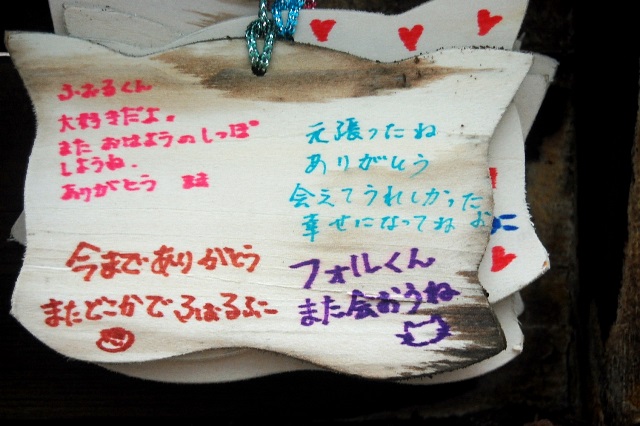 ふぉるくん
大好きだよ。
また おはようのしっぽ
しようね.
ありがとう
元張ったね
ありがとう
会えてうれしかった
幸せになってね
今までありがとう
またどこかで ふぉるふに
フォルくん
また会おうね